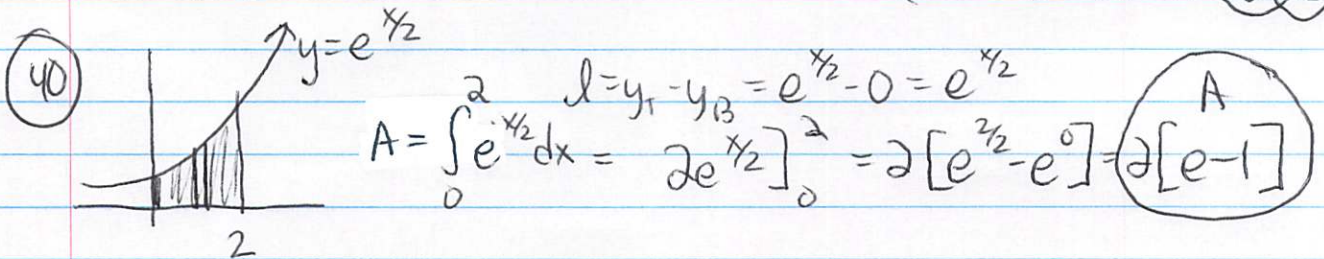 40
y=e^{x/2}
l=y_T-y_B=e^{x/2}-0=e^{x/2}
A=∫_0^2 e^{x/2}dx= 2e^{x/2}]_0^2 =2[e^{2/2}-e^0]=2[e-1]
A
2